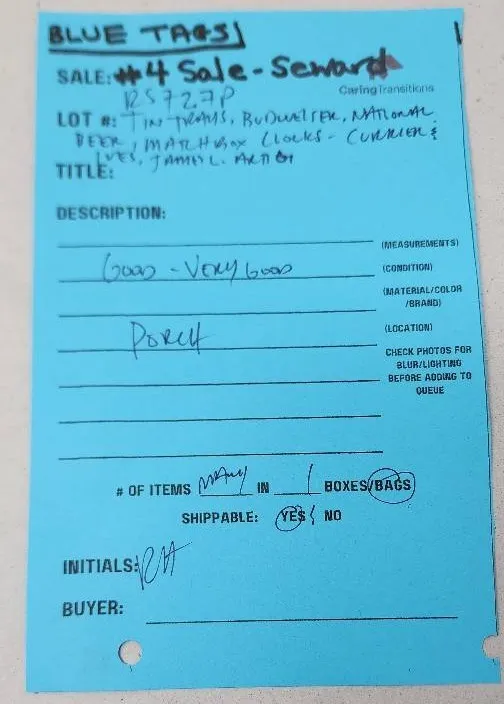 BLUE TAGS
SALE: #4 Sale - Seward
CaringTransitions
RS727P
LOT #: TIN-TRAYS, BUDWEISER, NATIONAL
BEER, MATCHBOX CLOCKS - CURRIER &
IVES, JAMES L. ARTIST
TITLE:
DESCRIPTION:
(MEASUREMENTS)
GOOD - VERY GOOD (CONDITION)
(MATERIAL/COLOR
/BRAND)
PORCH (LOCATION)
CHECK PHOTOS FOR
BLUR/LIGHTING
BEFORE ADDING TO
QUEUE
# OF ITEMS MANY IN 1 BOXES/BAGS
SHIPPABLE: YES / NO
INITIALS: RH
BUYER: